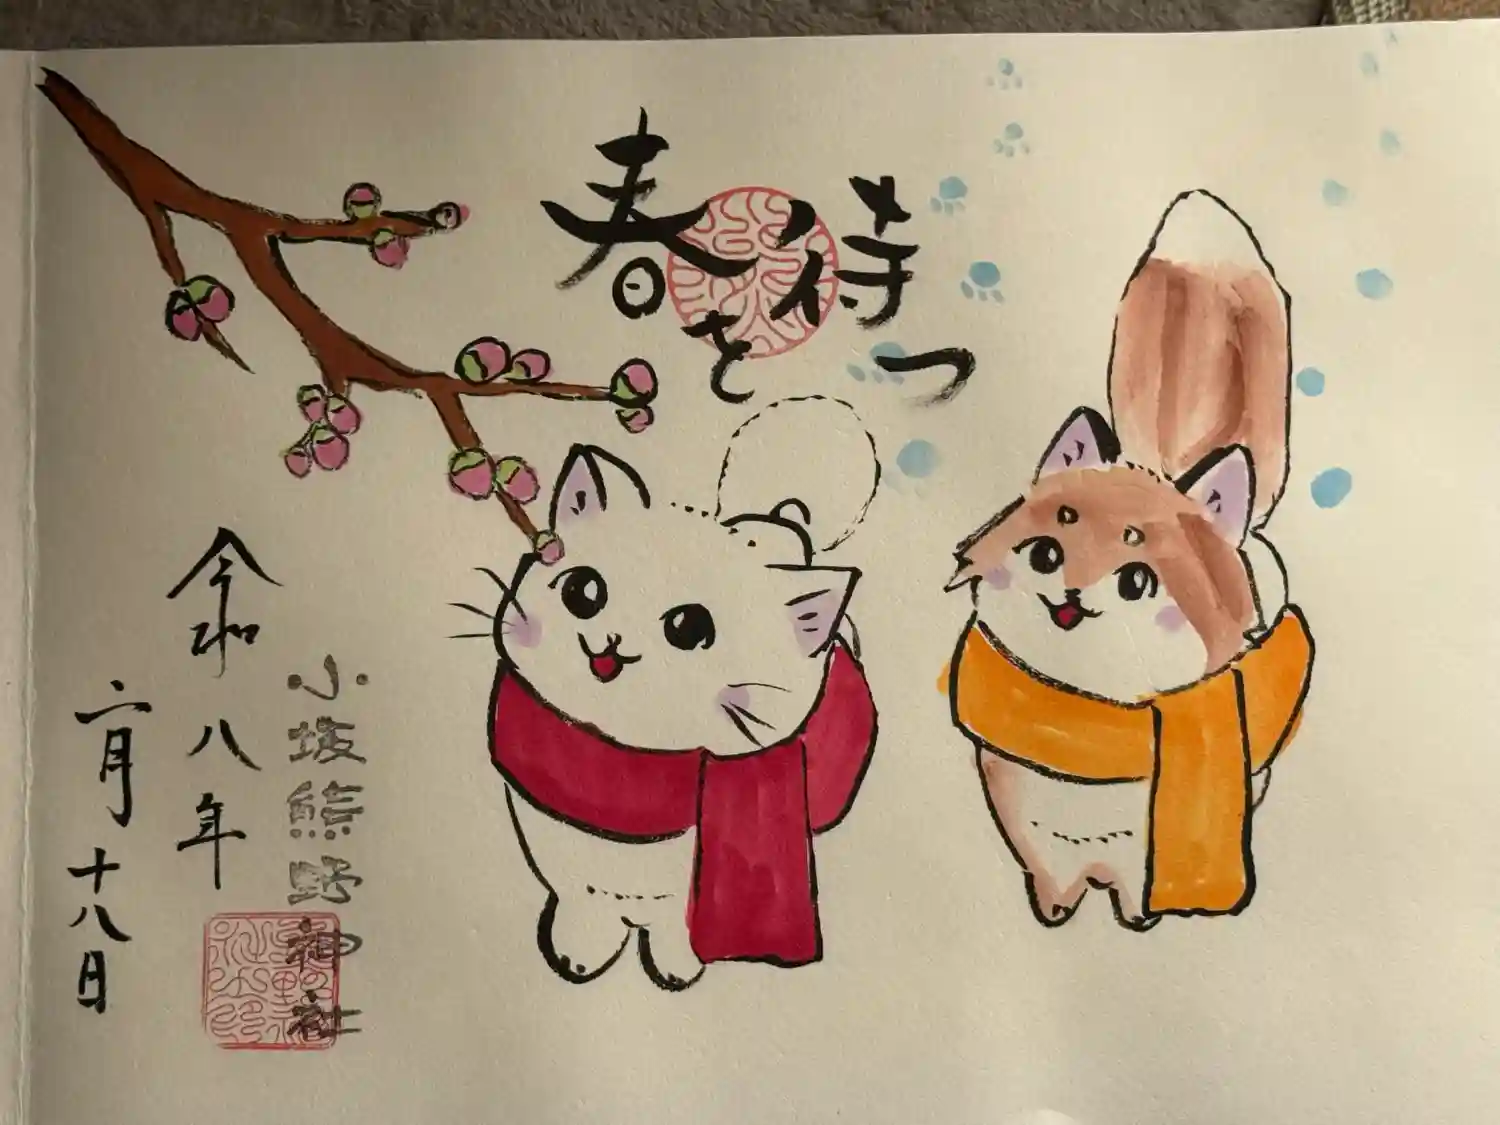 春を待つ
小坂熊野神社
令和八年
二月十八日